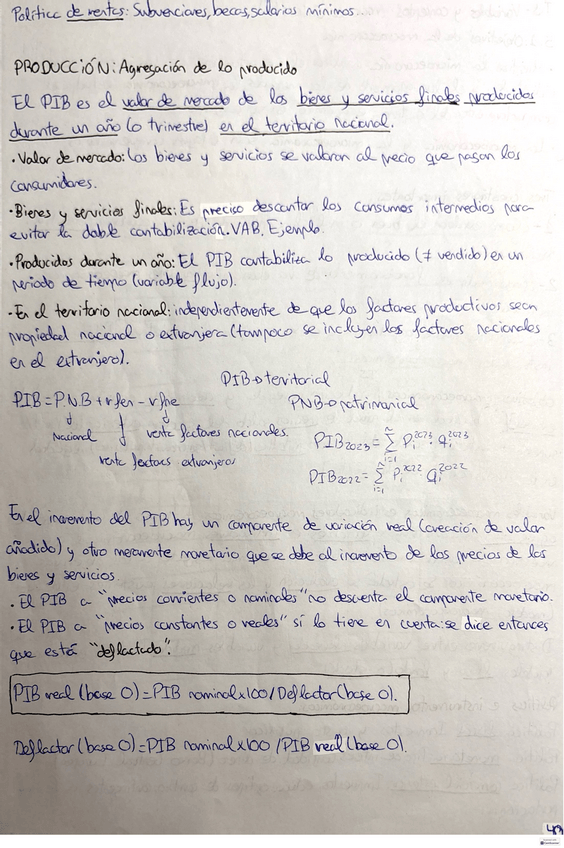 Política de rentas: Subvenciones, becas, salarios mínimos...
PRODUCCIÓN: Agregación de lo producido
El PIB es el valor de mercado de los bienes y servicios finales producidos
durante un año (o trimestre) en el territorio nacional.
· Valor de mercado: Los bienes y servicios se valoran al precio que pagan los
consumidores.
· Bienes y servicios finales: Es preciso descontar los consumos intermedios para
evitar la doble contabilización. VAB. Ejemplo.
· Producidos durante un año: El PIB contabiliza lo producido (≠ vendido) en un
periodo de tiempo (variable flujo).
· En el territorio nacional: independientemente de que los factores productivos sean
propiedad nacional o extranjera (tampoco se incluyen los factores nacionales
en el extranjero).
PIB → territorial
PIB = P.N.B + rfen - rfne
PNB → patrimonial
Nacional
renta factores nacionales.
renta factores extranjeros
PIB2023 = Σ Pi^2023 · qi^2023
PIB2022 = Σ Pi^2022 qi^2022
En el incremento del PIB hay un componente de variación real (creación de valor
añadido) y otro meramente monetario que se debe al incremento de los precios de los
bienes y servicios.
· El PIB a "precios corrientes o nominales" no descuenta el componente monetario.
· El PIB a "precios constantes o reales" sí lo tiene en cuenta: se dice entonces
que está "deflactado".
PIB real (base 0) = PIB nominal x 100 / Deflactor (base 0).
Deflactor (base 0) = PIB nominal x 100 / PIB real (base 0).